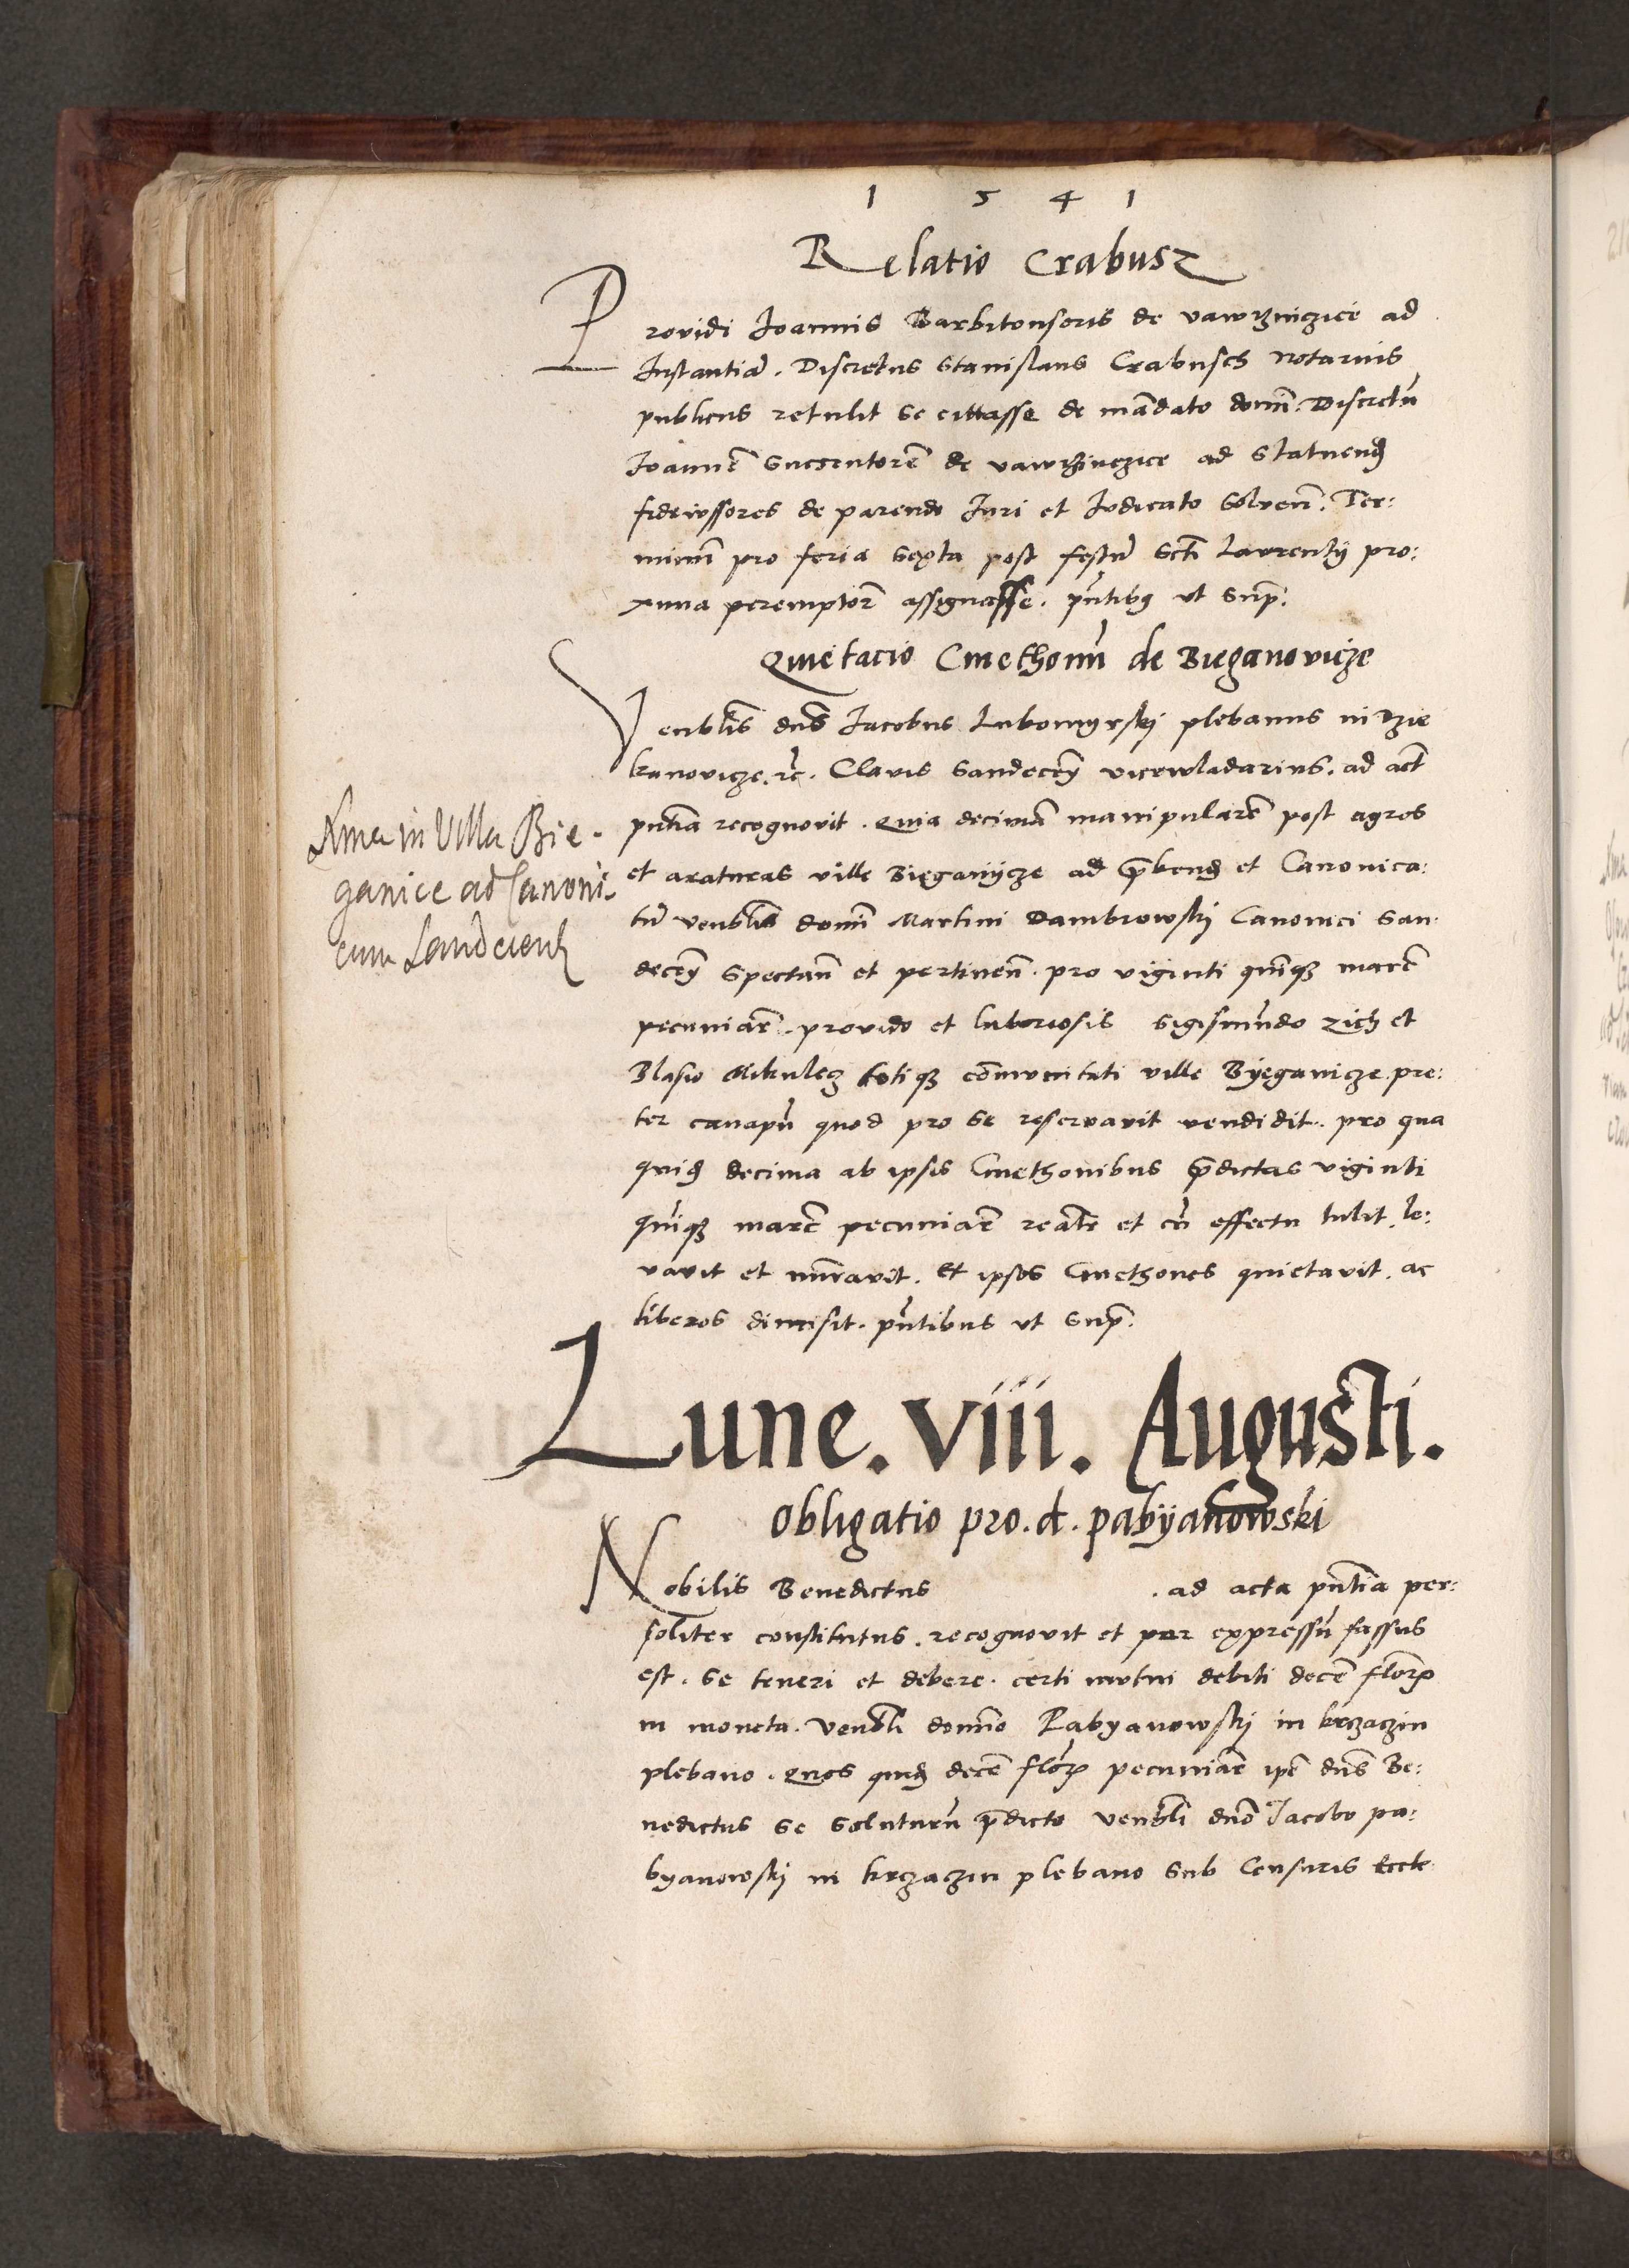 1 5 4 1
Relatio Crabusz
Providi Joannis Barbitonsoris de vawrzinczicze ad
Instantiã. Discretus Stanislaus Crabusch Notarius
publicus retulit se cittasse de mãdato domĩ. Discretũ
Joannẽ Succentorẽ de vawrzinczice ad Statuend
fideiussores de parendo Juri et Iudicato Solven̄. Ter:
minũ pro feria Sexta post festũ Scti Laurentÿ pro:
xima peremptor̃ assignasse. pñtibus ut Supᷓ.
Quietacio Cmethonũ de Bieganovicze
Venblis dns Jacobus Lubomyrskj plebanus in Dzie
kanovicze. rc̃. Clavis Sandeceñ vicewladarius. ad act
pntia recognovit. Quia decimã manipularẽ post agros
et araturas ville Biegaÿicze ad p̃bend et Canonica:
tũ venblis domĩ Martini Dambrowskj Canonici San
deceñ Spectan̄ et pertinen̄. pro viginti quinq̃ marc̃
pecuniar̃. provido et laboriosis Sigismũdo zich et
Blasio Mikulecz totiq̃ cõmunitati ville Byeganicze. pre:
ter canapũ quod pro se reservavit vendidit. pro qua
quid decima ab ipsis Cmethonibus p̃dictas viginti
quinq̃ marc̃ pecuniar̃ realr̃ et cũ effectu tulit, le:
vavit et nũravit. Et ipsos Cmethones quietavit. ac
liberos dimisit. pñtibus ut Supᷓ.
Xma in Villa Bie-
ganice ad Canoni-
cum Sandecien
Lune. viii. Augusti.
Obligatio pro. d. pabyanowski
Nobilis Benedictus . ad acta pñtia per:
soliter constitutus. recognovit et per expressũ fassus
est. Se teneri et debere. certi mutui debiti decẽ flor̃
in moneta. Venbli domino Pabyanowskj in krczaczin
plebano. Quos quid decẽ flor̃ pecuniar̃ ipẽ dns Be:
nedictus se Soluturũ p̃dicto venbli dno Jacobo pa:
byanowskj in krczaczin plebano Sub Censuris Eccle